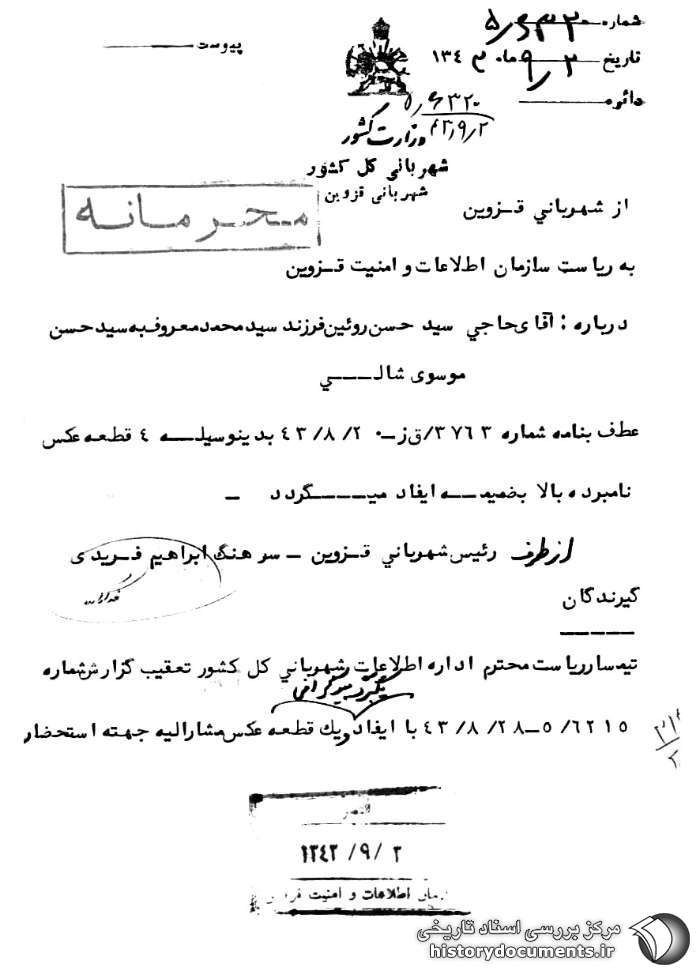 شماره ۵/۶۳۲۰
تاریخ ۹/۲ ماه ۱۳۴۳
دائره
پیوست
۵/۶۳۲۰
۴۳/۹/۲
وزارت کشور
شهربانی کل کشور
شهربانی قزوین
محرمانه
از شهربانی قزوین
به ریاست سازمان اطلاعات و امنیت قزوین
درباره : آقای حاجی سید حسن روئین فرزند سید محمد معروف به سید حسن
موسوی شالی
عطف بنامه شماره ۳۷۶۳/ق ز - ۴۳/۸/۲۰ بدینوسیله ۴ قطعه عکس
نامبرده بالا بضمیمه ایفاد میگردد -
از طرف رئیس شهربانی قزوین - سرهنگ ابراهیم فریدی
گیرندگان
تیمسار ریاست محترم اداره اطلاعات شهربانی کل کشور تعقیب گزارش شماره
۵/۶۲۱۵-۴۳/۸/۲۸ با ایفاد و یك قطعه عکس مشارالیه جهته استحضار
۱۳۴۳/۹/۲
سازمان اطلاعات و امنیت
مرکز بررسی اسناد تاریخی
historydocuments.ir